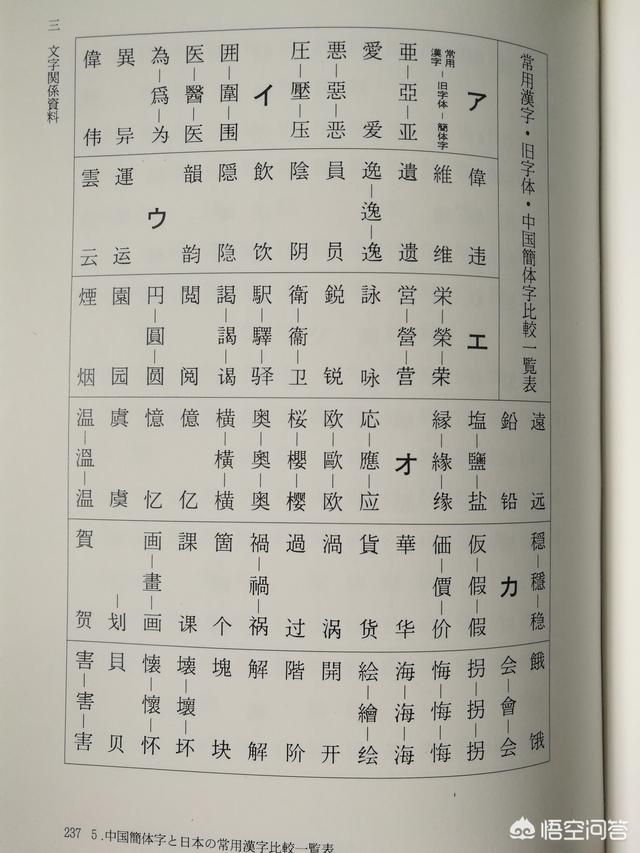 三 文字関係資料
常用漢字・旧字体・中国簡体字比較一覧表
ア
常用漢字―旧字体―簡体字
亜―亞―亚
愛 爱
悪―惡―恶
圧―壓―压
イ
囲―圍―围
医―醫―医
為―爲―为
異 异
偉 伟
偉 违
維 维
遺 遗
逸―逸―逸
員 员
陰 阴
飲 饮
隠 隐
韻 韵
ウ
運 运
雲 云
エ
栄―榮―荣
営―營―营
詠 咏
鋭 锐
衛―衞―卫
駅―驛―驿
謁―謁―谒
閲 阅
円―圓―圆
園 园
煙 烟
遠 远
鉛 铅
塩―鹽―盐
縁―緣―缘
オ
応―應―应
欧―歐―欧
桜―櫻―樱
奥―奧―奥
横―橫―横
億 亿
憶 忆
虞 虞
温―溫―温
穏―穩―稳
カ
仮―假―假
価―價―价
華 华
貨 货
渦 涡
過 过
禍―禍―祸
箇 个
課 课
画―畫―画
―划
賀 贺
餓 饿
会―會―会
拐―拐―拐
悔―悔―悔
海―海―海
絵―繪―绘
開 开
階 阶
解 解
塊 块
壊―壞―坏
懐―懷―怀
貝 贝
害―害―害
237 5.中国簡体字と日本の常用漢字比較一覧表
悟空问答